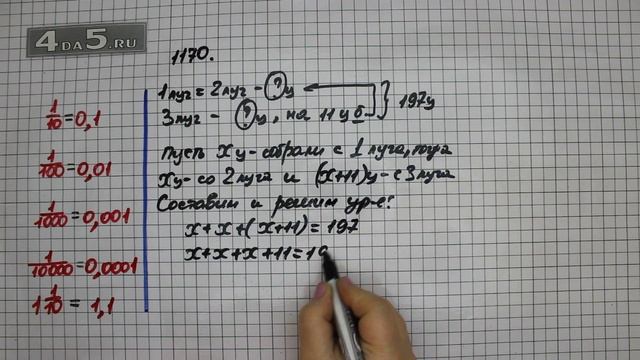 4DA5.RU
1170.
1 луг = 2 луг - ? ц
3 луг - ? ц, на 11 ц б
197 ц
Пусть x ц - собрали с 1 луга, тогда
x ц - со 2 луга и (x+11) ц - с 3 луга
Составим и решим ур-е:
x+x+(x+11)=197
x+x+x+11=19
1/10 = 0,1
1/100 = 0,01
1/1000 = 0,001
1/10000 = 0,0001
1 1/10 = 1,1